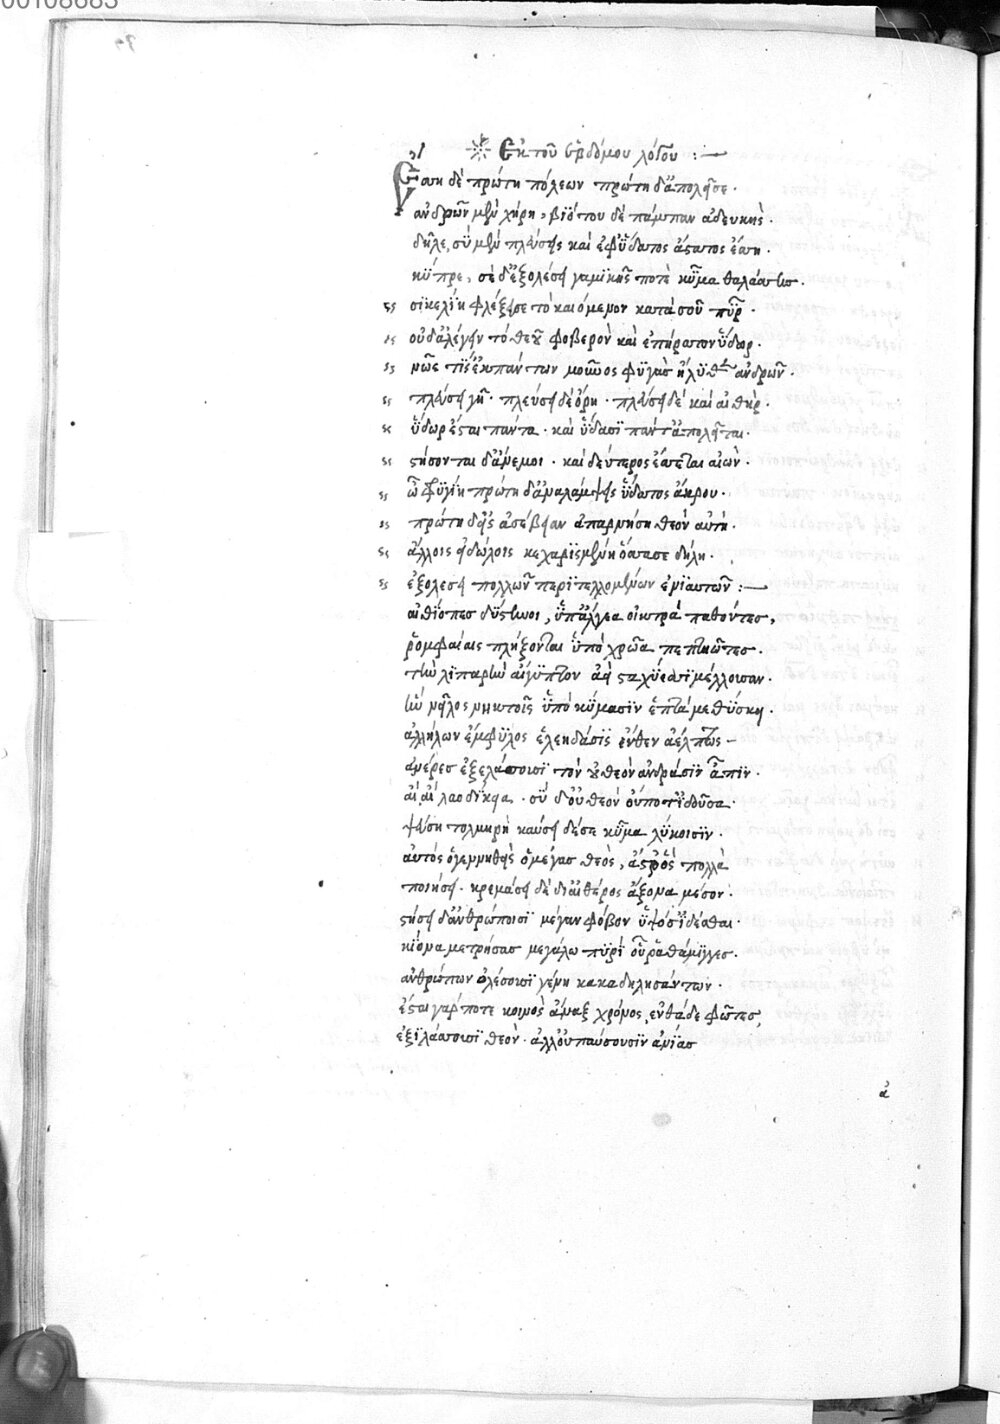 00108683
Ἐκ τοῦ ἑβδόμου λόγου :—
ἔσση δὲ πρώτη πόλεων πρώτη δ' ἀπολεῖσε.
ἀνδρῶν μὲν χήρη, βιότου δὲ πάμπαν ἀδευκής.
δῆλε, σὺ μὲν πλεύσεις καὶ ἐφ' ὕδατος ἄστατος ἔσση.
κύπρε, σὲ δ' ἐξολέσει ποτὲ κῦμα θαλάσσης.
σικελίη φλέξει σε τὸ καιόμενον κατὰ σοῦ πῦρ.
οὐδ' ἀλέγειν τὸ θεοῦ φοβερὸν καὶ ἐπήρατον ὕδωρ.
νῶε τις ἐκ πάντων μοῦνος φυγὰς ἤλυθεν ἀνδρῶν.
πλεύσει γῆ. πλεύσει δὲ ὄρη. πλεύσει δὲ καὶ αἰθήρ.
ὕδωρ ἔσται πάντα. καὶ ὕδασι πάντ' ἀπολεῖται.
στήσονται δ' ἄνεμοι. καὶ δεύτερος ἔσσεται αἰών.
ὦ φρυγίη πρώτη δ' ἀναλάμψεις ὕδατος ἄκρου.
πρώτη δ' εἰς ἀσέβειαν ἀπαρνήση θεὸν αὐτή.
ἄλλοις εἰδώλοις κεχαρισμένη ὅσσα σε δήλη.
ἐξολέσει πολλῶν περιτελλομένων ἐνιαυτῶν :—
αἰθίοπες δύστηνοι, ὑπ' ἄλγεα οἰκτρὰ παθόντες,
ῥομφαίαις πλήξονται ὑπὸ χρῶα πεπτηῶτες.
τὴν λιπαρὴν αἴγυπτον ἀεὶ σταχύεσσι μέλλουσαν.
ἣν νεῖλος νηκτοῖς ὑπὸ κύμασιν ἑπτὰ μεθύσκει.
ἀλλήλων ἔμφυλος ὀλεῖ στάσις ἔνθεν ἀέλπτως—
ἀνέρες ἐξελάσσουσι τὸν οὐ θεὸν ἀνδράσιν ἆπιν.
αἲ αἲ λαοδίκεια. σὺ δ' οὐ θεὸν οὔποτ' ἰδοῦσα.
ψεύση τολμηρὴ καύσει δέ σε κῦμα λύκοισιν.
αὐτὸς ὁ γεννηθεὶς ὁ μέγας θεὸς, ἄστρα πολλὰ
ποιήσει. κρεμάσει δὲ δι' αἰθέρος ἄξονα μέσον.
στήσει δ' ἀνθρώποισι μέγαν φόβον ὑψόσ' ἰδέσθαι.
κίονα μετρήσας μεγάλω πυρὶ οὗ ῥαθάμιγγες.
ἀνθρώπων ὀλέσουσι γένη κακὰ δηλησάντων.
ἔσται γάρ ποτε κοινὸς ἅπαξ χρόνος, ἔνθα δὲ φῶτες,
ἐξιλάσσουσι θεὸν. ἀλλ' οὐ παύσουσιν ἀνίας
ἀ